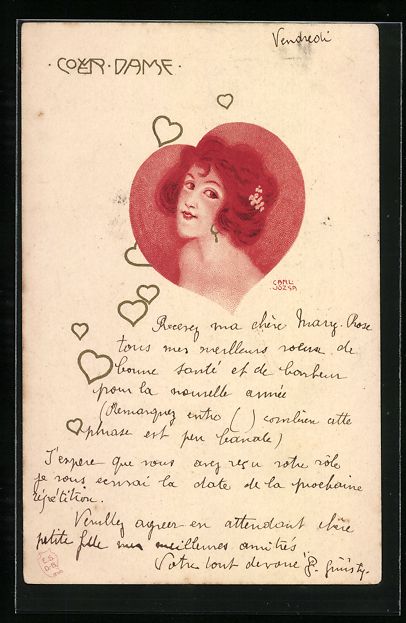 Vendredi
· COEUR · DAME ·
CARL
JOZSA
Recevez ma chère Mary-Rose
tous mes meilleurs voeux de
bonne santé et de bonheur
pour la nouvelle année
(Remarquez entre ( ) combien cette
phrase est peu banale)
J'espère que vous avez reçu votre rôle
je vous écrirai la date de la prochaine
répétition.
Veuillez agréer en attendant chère
petite fille mes meilleures amitiés
Votre tout dévoué
E.S.
D.B.